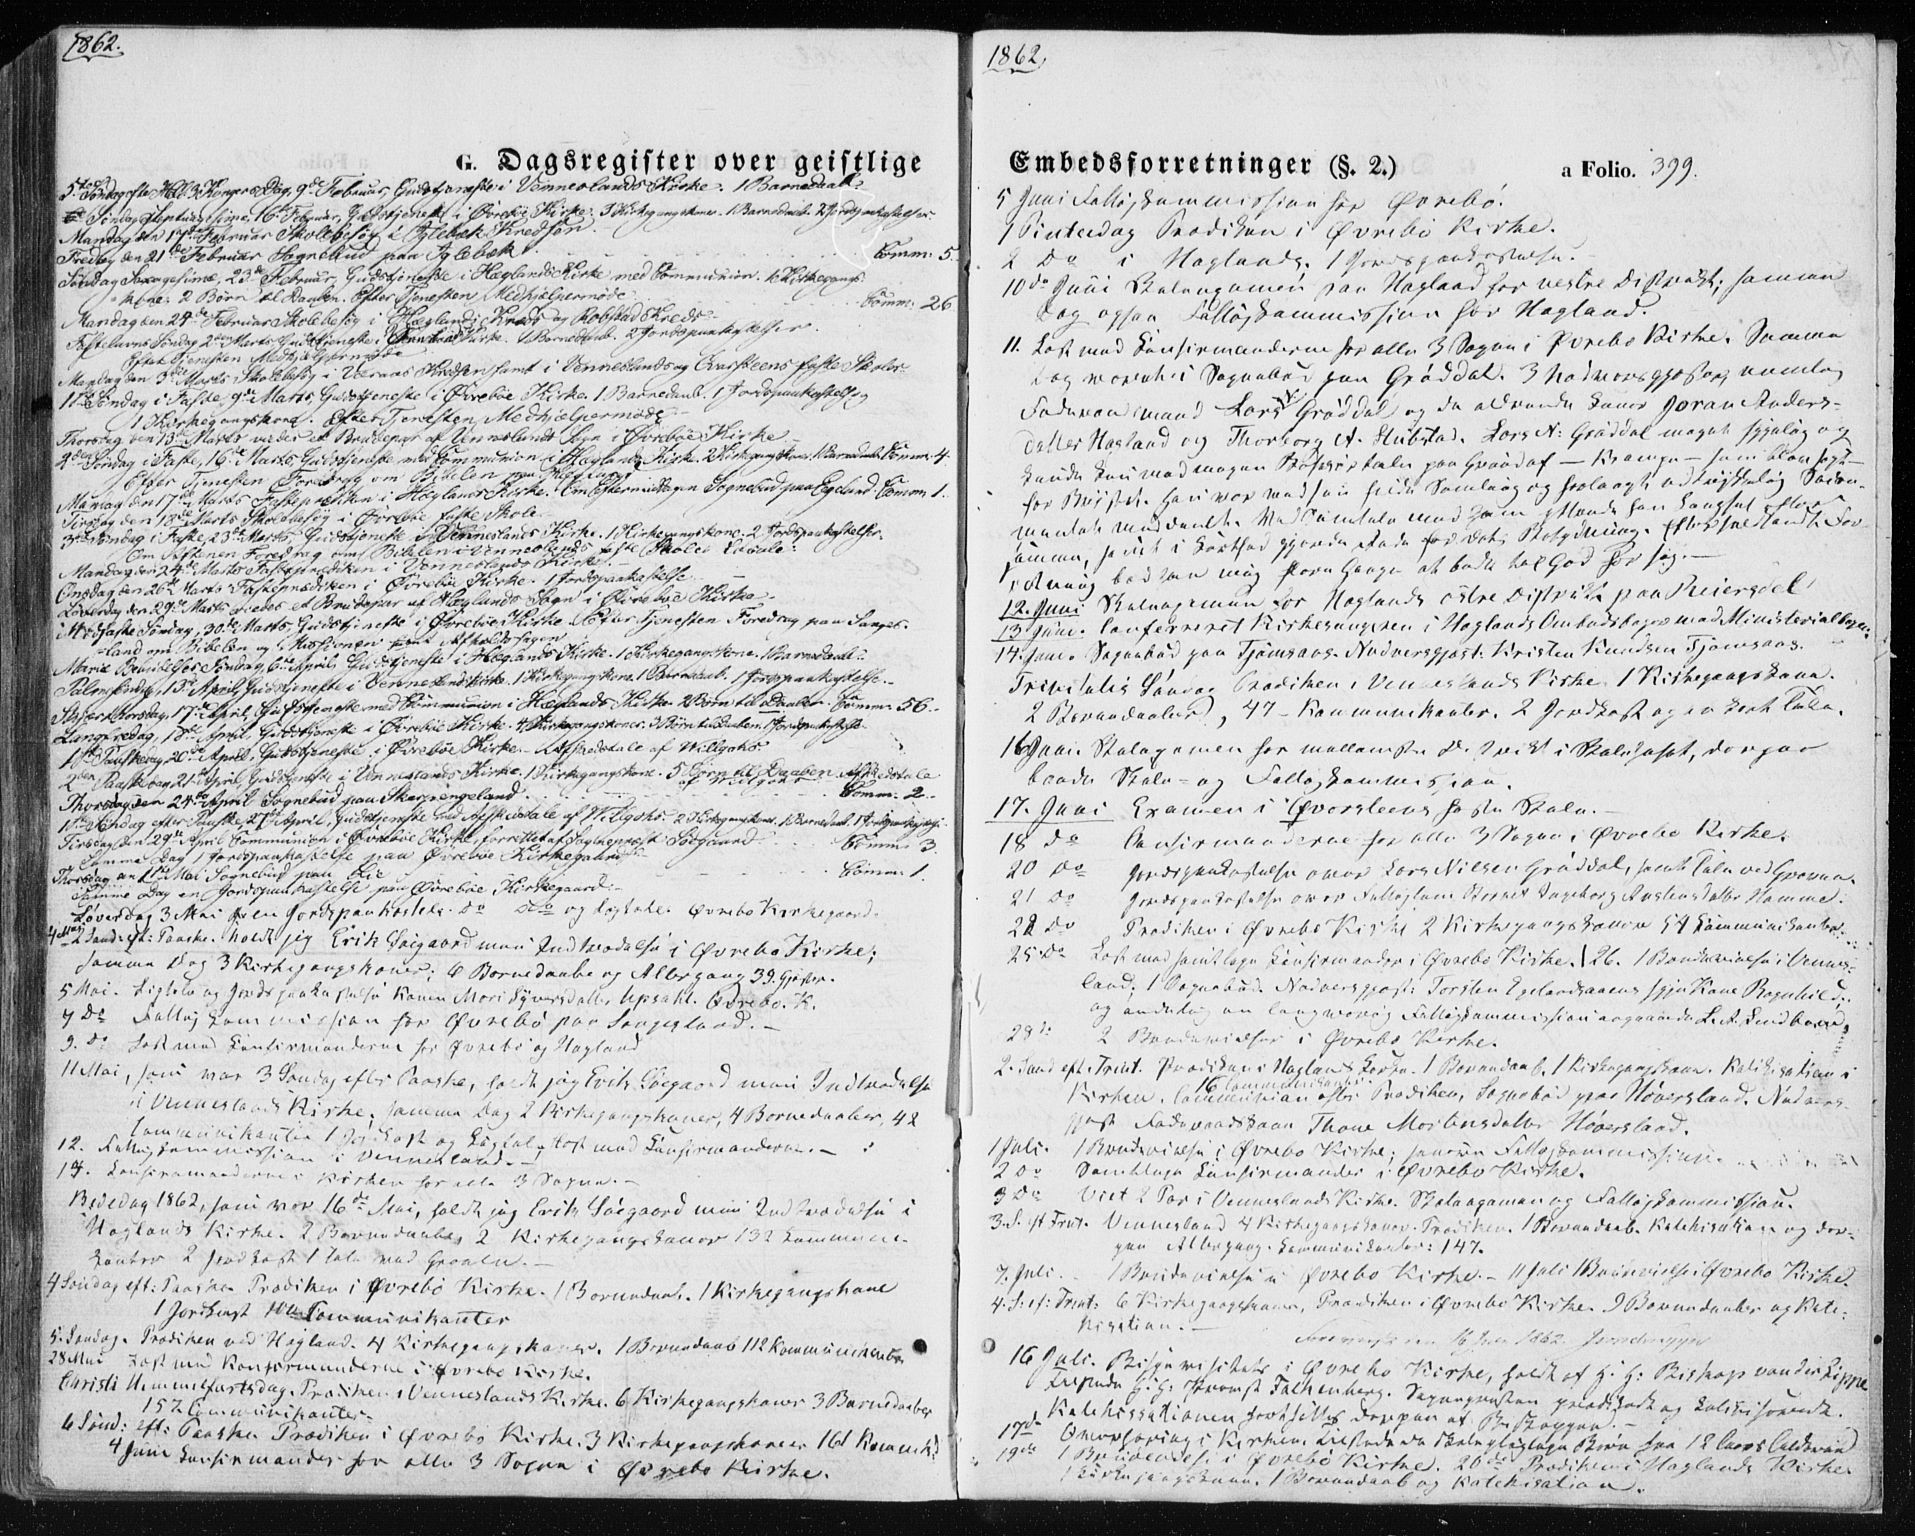 1862.
G. Dagsregister over geistlige
5te Søndag efter Hell. 3 Kongers Dag, 9de Februar, Gudstjeneste i Venneslands Kirke. 1 Barnedaab.
Søndag Septuagesima, 16de Februar, Gudstjeneste i Øvrebøe Kirke. 3 Kirkegangskoner. 1 Barnedaab. 2 Jordspaakastelser.
Mandag den 17de Februar Skolebesøg i Iglebæk Kredsen.
Fredag den 21de Februar Sognebud paa Iglebæk . . . Comm: 5.
Søndag Sexagesima, 23de Februar, Gudstjeneste i Heglands Kirke med Communion. 6 Kirkegangs-
koner. 2 Børn til Daaben. Efter Tjenesten Medhjælpermøde . . . Comm: 26
Mandag den 24de Februar Skolebesøg i Heglands Kreds og Robstad Kreds.
Fastelavns Søndag 2den Marts Gudstjeneste i Kirke. 1 Barnedaab. 2 Jordspaakastelser.
Efter Tjenesten Medhjælpermøde
Mandag den 3die Marts Skolebesøg i Kredsen samt i Venneslands og Qvarsteens faste Skoler
1ste Søndag i Faste, 9de Marts, Gudstjeneste i Øvrebøe Kirke. 1 Barnedaab. 1 Jordspaakastelse
1 Kirkegangskone. Efter Tjenesten Medhjælpermøde
Thorsdag den 13de Marts viedes et Brudepar af Venneslands Sogn i Øvrebøe Kirke
2den Søndag i Faste, 16de Marts, Gudstjeneste med Communion i Heglands Kirke. 2 Kirkegangskoner. 1 Barnedaab. Comm: 4.
Efter Tjenesten Foredrag om Bibelen paa Hegland
Mandag den 17de Marts Fasteprædiken i Heglands Kirke. Om Eftermiddagen Sognebud paa Egeland. Comm: 1.
Tirsdag den 18de Marts Skolebesøg i Øvrebøe faste Skole.
3die Søndag i Faste, 23de Marts, Gudstjeneste i Venneslands Kirke. 1 Kirkegangskone. 2 Jordspaakastelser.
Om Aftenen Foredrag om Bibelen i Venneslands faste Skoles Locale.
Mandag den 24de Marts Fasteprædiken i Venneslands Kirke.
Onsdag den 26de Marts Fasteprædiken i Øvrebøe Kirke. 1 Jordspaakastelse
Løverdag den 29de Marts viedes et Brudepar af Heglands Sogn i Øvrebøe Kirke.
Midfaste Søndag, 30te Marts, Gudstjeneste i Øvrebøe Kirke. Efter Tjenesten Foredrag paa Langes-
land om Bibelen og Missionen samt Afholdssagen
Mariæ Bebudelses Søndag, 6te April, Gudstjeneste i Heglands Kirke. 1 Kirkegangskone. 1 Barnedaab.
Palmesøndag, 13de April, Gudstjeneste i Venneslands Kirke. 1 Kirkegangskone 1 Barnedaab. 1 Jordspaakastelse.
Skjærthorsdag, 17de April, Gudstjeneste med Communion i Heglands Kirke. 2 Børn til Daaben. Comm: 56.
Langfredag, 18de April, Gudstjeneste i Øvrebøe Kirke. 4 Kirkegangskoner. 3 Børn til Daaben. 1 Jordspaakastelse.
1ste Paaskedag, 20de April, Gudstjeneste i Øvrebøe Kirke. Afskedstale af Willgohs
2den Paaskedag, 21de April, Gudstjeneste i Venneslands Kirke. 1 Kirkegangskone. 5 Børn til Daaben. Afskedstale
af Willgohs
Thorsdag den 24de April Sognebud paa Skarpengeland. . . . Comm: 2.
1ste Søndag efter Paaske 27de April, Gudstjeneste med Afskedstale af Willgohs. 2 Kirkegangskoner. 1 Barnedaab. 1 Jordspaakastelse.
Tirsdag den 29de April Communion i Øvrebøe Kirke forrettet af Sognepræst Søegaard . . . Comm: 3.
Samme Dag 1 Jordspaakastelse paa Øvrebøe Kirkegaard
Thorsdag den 1ste Mai Sognebud paa Lie . . . Comm: 1.
Samme Dag en Jordspaakastelse paa Øvrebøe Kirkegaard.
Løverdag 3 Mai en Jordspaakastelse do do og Ligtale. Øvrebø Kirkegaard.
4 Mai 2 Sønd: eft: Paaske. holdt jeg Erik Søegaard min Indtrædelse i Øvrebø Kirke;
samme Dag 3 Kirkegangskoner; 6 Barnedaabe og Altergang 39 Gjæster.
5 Mai. Ligtale og Jordspaakastelse Konen Mari Syversdatter Upsahl. Øvrebø. K.
7 do Fattigkommission for Øvrebø paa Langesland.
9. do læst med Konfirmanderne for Øvrebø og Hægland
11 Mai, som var 3 Søndag efter Paaske, holdt jeg Erik Søegaard min Indtrædelse
i Venneslands Kirke, samme Dag 2 Kirkegangskoner, 4 Barnedaaber, 42
Communikanter 1 Jordkast og Ligtale, læst med Konfirmanderne.
12. Fattigkommission i Vennesland.
14. Konfirmanderne i Kirken for alle 3 Sogne.
Bededag 1862, som var 16de Mai, holdt jeg Erik Søegaard min Indtrædelse i
Heglands Kirke. 2 Barnedaaber 2 Kirkegangskoner 132 Kommuni-
kanter 2 Jordkast 1 Tale ved Graven.
4 Søndag eft: Paaske Prædiken i Øvrebø Kirke. 1 Barnedaab. 1 Kirkegangskone
1 Jordkast Communikanter
5. Søndag. Prædiken ved Hægland. 4 Kirkegangskoner. 1 Barnedaab 112 Kommunikanter
28 Mai læst med Konfirmanderne i Øvrebø Kirke.
Christi Himmelfartsdag. Prædiken i Venneslands Kirke. 6 Kirkegangskoner 3 Barnedaaber
152 Communikanter.
6 Sønd: eft: Paaske Prædiken i Øvrebø Kirke. 3 Kirkegangskoner 161 Kommuk:
4 Juni Konfirmander for alle 3 Sogne i Øvrebø Kirke.
1862.
Embedsforretninger (§. 2.)
a Folio. 399.
5 Juni Fattigkommission for Øvrebø.
1 Pintsedag Prædiken i Øvrebø Kirke.
2 do i Hæglands. 1 Jordspaakastelse.
10de Juni Skoleexamen paa Hægland for vestre Distrikt; samme
Dag ogsaa Fattigkommission for Hægland.
11. Læst med Konfirmanderne for alle 3 Sogne i Øvrebø Kirke. Samme
Dag været i Sognebud paa Grøddal. 3 Nadvergjæster, nemlig
Føderaadsmand Lars N Grøddal og de aldrende Koner Joran Anders-
datter Hægland og Thorborg A. Stubstad. Lars N: Grøddal meget sygelig og
for Brystet. Han var med sin fulde Samling og
12. Juni Skoleexamen for Hæglands østre Distrikt paa Reiersdal
13. Juni. Confereret Kirkesangeren i Hæglands Ombudsbøger med Ministerialbogen.
14. Juni. Sognebud paa Tjomsaas. Nadvergjæst: Kristen Knudsen Tjomsaas.
Trinitatis Søndag Prædiken i Venneslands Kirke 1 Kirkegangskone.
2 Barnedaaber, 47 Kommunikanter. 2 Jordkast og en kort Tale.
16 Juni Skoleexamen for mellemste Distrikt i Skolehuset, derpaa
baade Skole- og Fattigkommission.
17. Juni Examen i Qvarsteens faste Skole.
18 do Confirmanderne for alle 3 Sogne i Øvrebø Kirke.
20 do Jordspaakastelse over Lars Nielsen Grøddal, samt Tale ved Graven.
21 do Jordspaakastelse over Fattiglem Barnet Ingeborg Austensdatter Homme.
22 do Prædiken i Øvrebø Kirke 2 Kirkegangskoner 54 Kommunikanter.
25 do Læst med samtlige Konfirmander i Øvrebø Kirke. | 26. 1 Brudevielse i Vennes-
land; 1 Sognebud. Nadvergjæst: Torsten Egelandsaaens syge Kone Ragnhild;
og endelig en langvarig Fattigkommission angaaende
28de 2 Brudevielser i Øvrebø Kirke.
2. Sønd eft. Trint. Prædiken i Heglands Kirke. 1 Barnedaab. 1 Kirkegangskone. Katekisation i
Kirken. 16 Communikanter. Communion efter Prædiken, Sognebud paa Høversland. Nadver-
gjæst Føderaadskone Thone Mortensdatter Høversland.
1 Juli. 1 Brudevielse i Øvrebø Kirke; Fattigkommission.
2 do Samtlige Konfirmander i Øvrebø Kirke.
3 do Viet 2 Par i Venneslands Kirke. Skoleexamen og Fattigkommission.
3. S. eft Trint. Vennesland 4 Kirkegangskoner. Prædiken. 1 Barnedaab. Katekisation og der-
paa Altergang. Kommunikanter: 147.
7. Juli. 1 Brudevielse i Øvrebø Kirke. – 11 Juli 1 Brudevielse i Øvrebø Kirke.
4. S: ef: Trint: 6 Kirkegangskoner, Prædiken i Øvrebø Kirke. 9 Barnedaaber og Kate-
kisation.
16 Juli 1862
16 Juli. Bispevisitats i Øvrebø Kirke, holdt af H. H. Biskop von der Lippe
Tilstede H. H. Provst Falkenberg. Sognepræsten prædikede og katekiserede.
Katekisationen fortsattes derpaa af Biskoppen.
17de Overhøring i Kirken,
19de 1 Brudevielse i Øvrebø Kirke. 20de Prædiken i Heglands Kirke
1 Kirkegangskone. 1 Barnedaab og Katekisation.